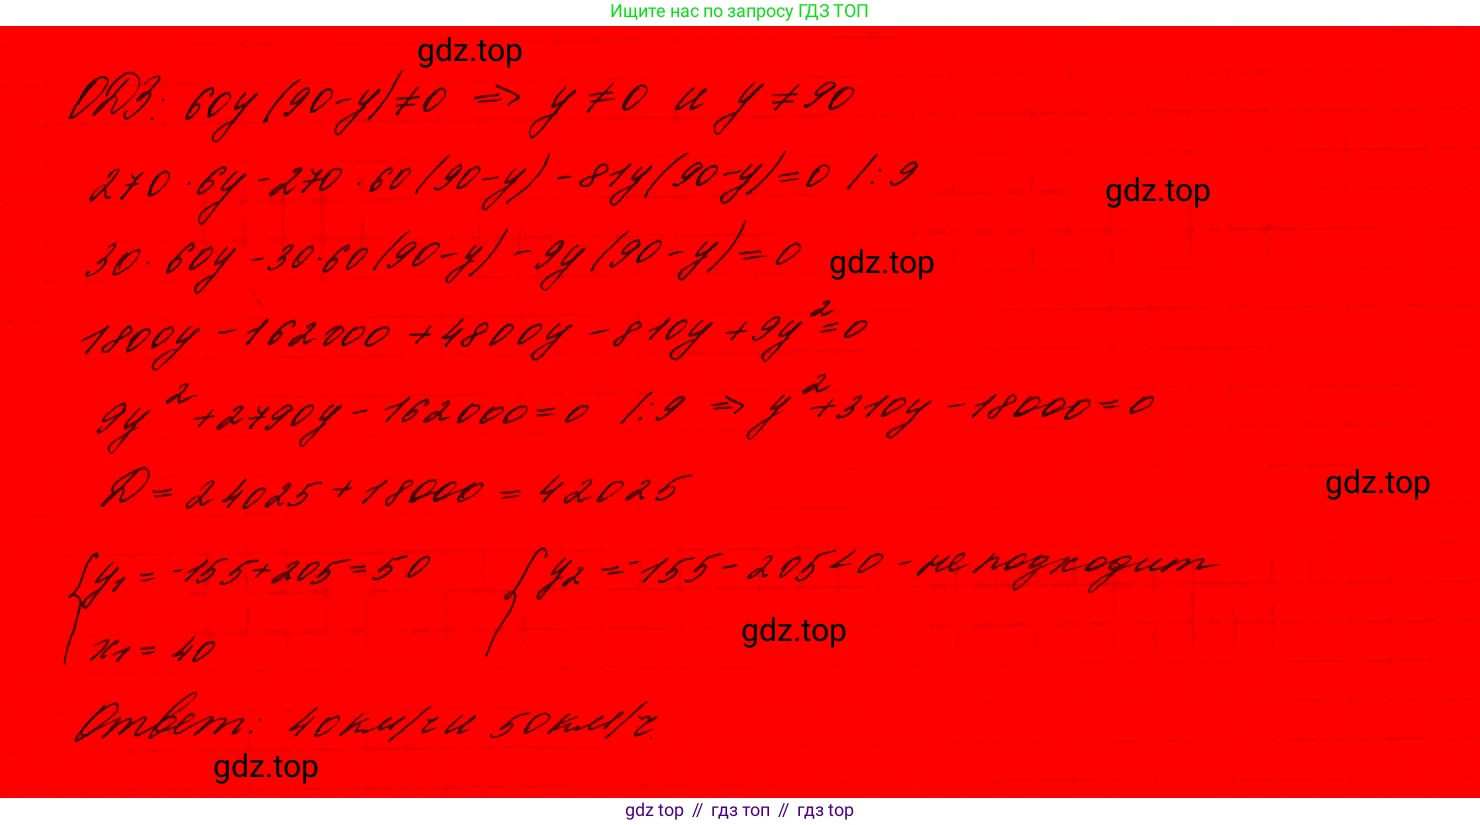 Ищите нас по запросу ГДЗ ТОП
gdz.top
ОДЗ: 60y(90-y)≠0 => y≠0 и y≠90
270·6y-270·60(90-y)-81y(90-y)=0 |:9
gdz.top
30·60y-30·60(90-y)-9y(90-y)=0
gdz.top
1800y-162000+4800y-810y+9y²=0
9y²+2790y-162000=0 |:9 => y²+310y-18000=0
D=24025+18000=42025
gdz.top
{y₁=-155+205=50 {y₂=-155-205<0 - не подходит
x₁=40
gdz.top
Ответ: 40км/ч и 50км/ч.
gdz.top
gdz top // гдз топ // гдз top